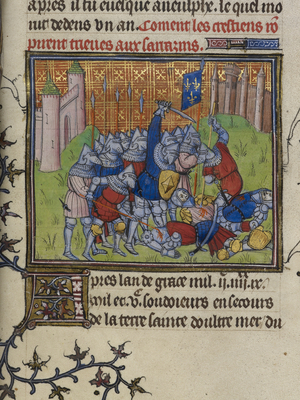 apres il fu euesque aueulphe. le quel mo
rut dedens vn an. Coment les crestiens rō
pirent trieues aux sarrazins.
Apres lan de grace mil. ij. iiij. ix.
mil et .v. soudoiers en secours
de la terre sainte doultre mer du